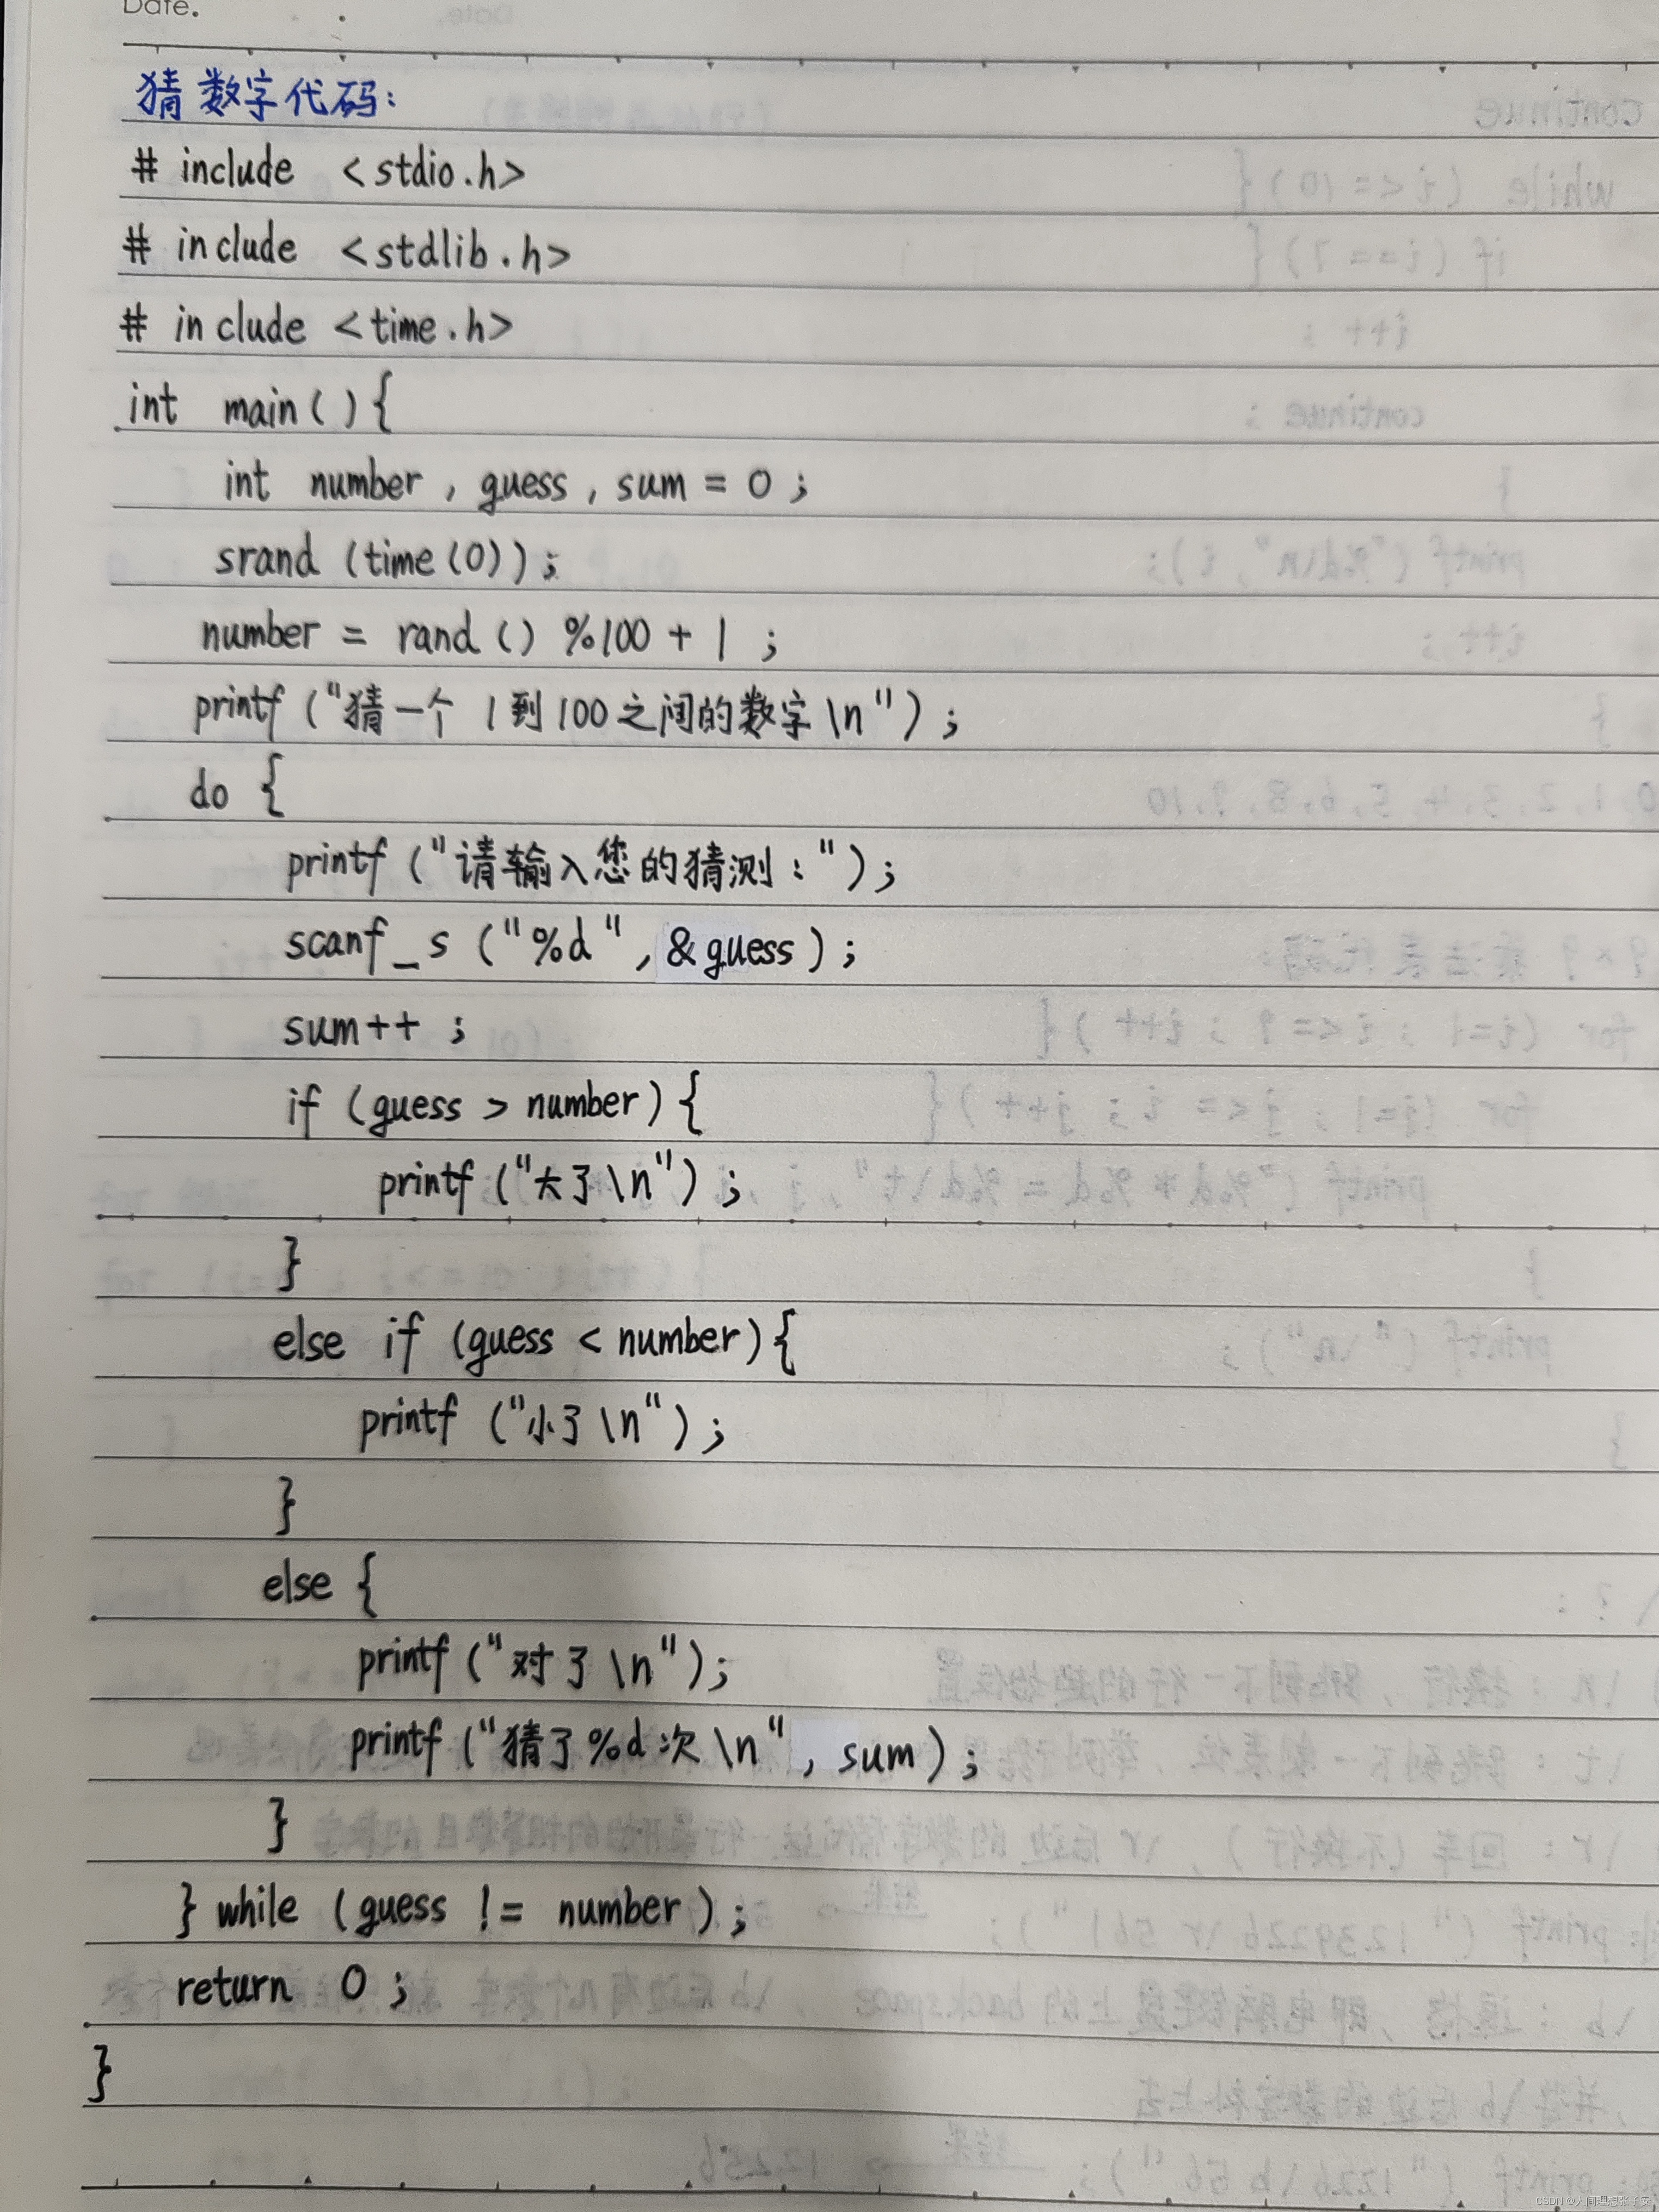 Date.
猜数字代码:
# include <stdio.h>
# include <stdlib.h>
# include <time.h>
int main(){
int number, guess, sum = 0;
srand (time(0));
number = rand() %100 + 1;
printf ("猜一个 1到100之间的数字\n");
do {
printf ("请输入您的猜测:");
scanf_s ("%d", &guess);
sum++;
if (guess > number){
printf ("大了\n");
}
else if (guess < number){
printf ("小了\n");
}
else {
printf ("对了\n");
printf ("猜了%d次\n", sum);
}
} while (guess != number);
return 0;
}
CSDN @人间理想张子安